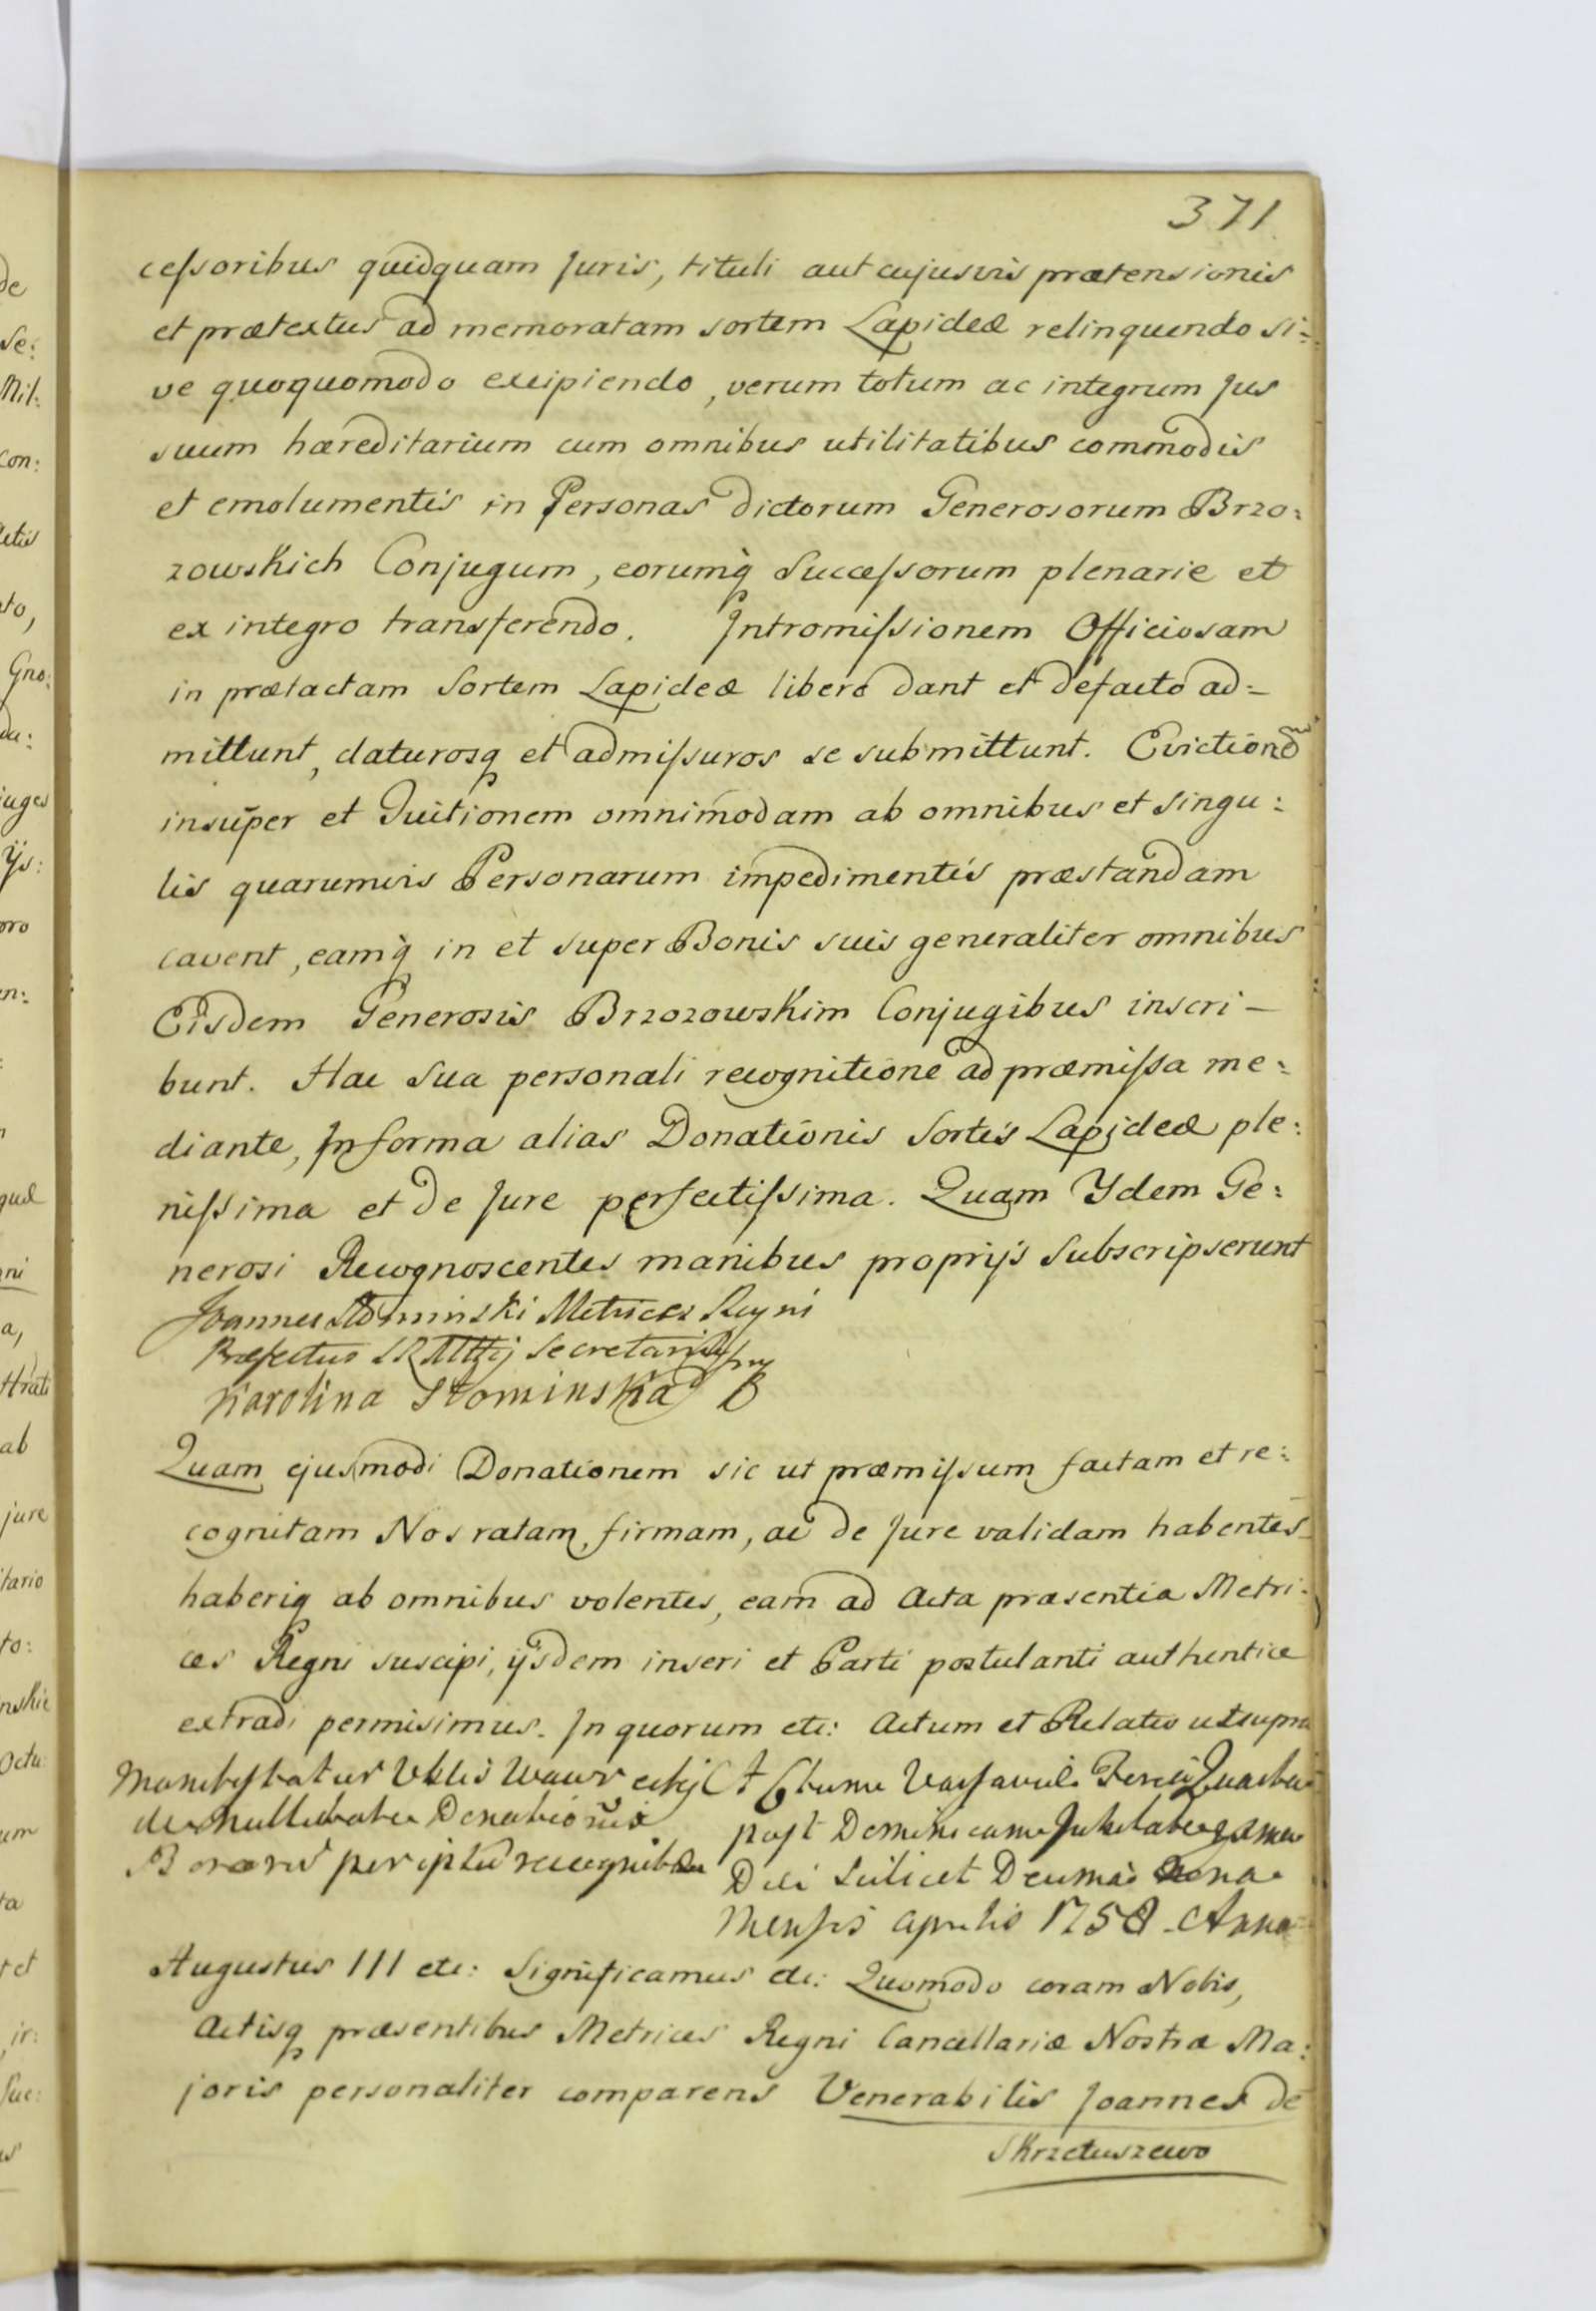 371
cessoribus quidquam Juris, tituli aut cujusvis prætensionis
et prætextus ad memoratam sortem Lapideæ relinquendo si=
ve quoquomodo excipiendo, verum totum ac integrum Jus
suum hæreditarium cum omnibus utilitatibus commodis
et emolumentis in Personas dictorum Generosorum Brzo:
zowskich Conjugum, eorumq Successorum plenarie et
ex integro transferendo. Intromissionem Officiosam
in prætactam Sortem Lapideæ libere dant et defacto ad=
mittunt, daturosq et admissuros se submittunt. Evictionem
insuper et Tuitionem omnimodam ab omnibus et singu:
lis quarumvis Personarum impedimentis præstandam
cavent, eamq in et super Bonis suis generaliter omnibus
Eisdem Generosis Brzozowskim Conjugibus inscri-
bunt. Hac Sua personali recognitione ad præmissa me:
diante, In forma alias Donationis Sortis Lapideæ ple:
nissima et de Jure perfectissima. Quam Ydem Ge:
nerosi Recognoscentes manibus proprijs Subscripserunt
Joannes Słominski Metrices Regni
Præfectus SRMttij Secretarius mp
Karolina Słominska
Quam ejusmodi Donationem sic ut præmissum factam et re:
cognitam Nos ratam, firmam, ac de Jure validam habentes
haberiq ab omnibus volentes, eam ad Acta præsentia Metri:
ces Regni suscipi, ijsdem inseri et Parti postulanti authentice
extradi permisimus. In quorum etc: Actum et Relatio ut supra
Manifestatur Vblis Wawr
de nullitate Donationis
Bonorum per ipsum recognitæ
Actum Varsaviæ Feria Quarta
post Dominicam Jubilate
Die Scilicet Decima nona
Mensis Aprilis 1758 Anno
Augustus III etc: Significamus etc: Quomodo coram Nobis,
Actisq præsentibus Metrices Regni Cancellariæ Nostræ Ma:
joris personaliter comparens Venerabilis Joannes de
Skrzetuszewo